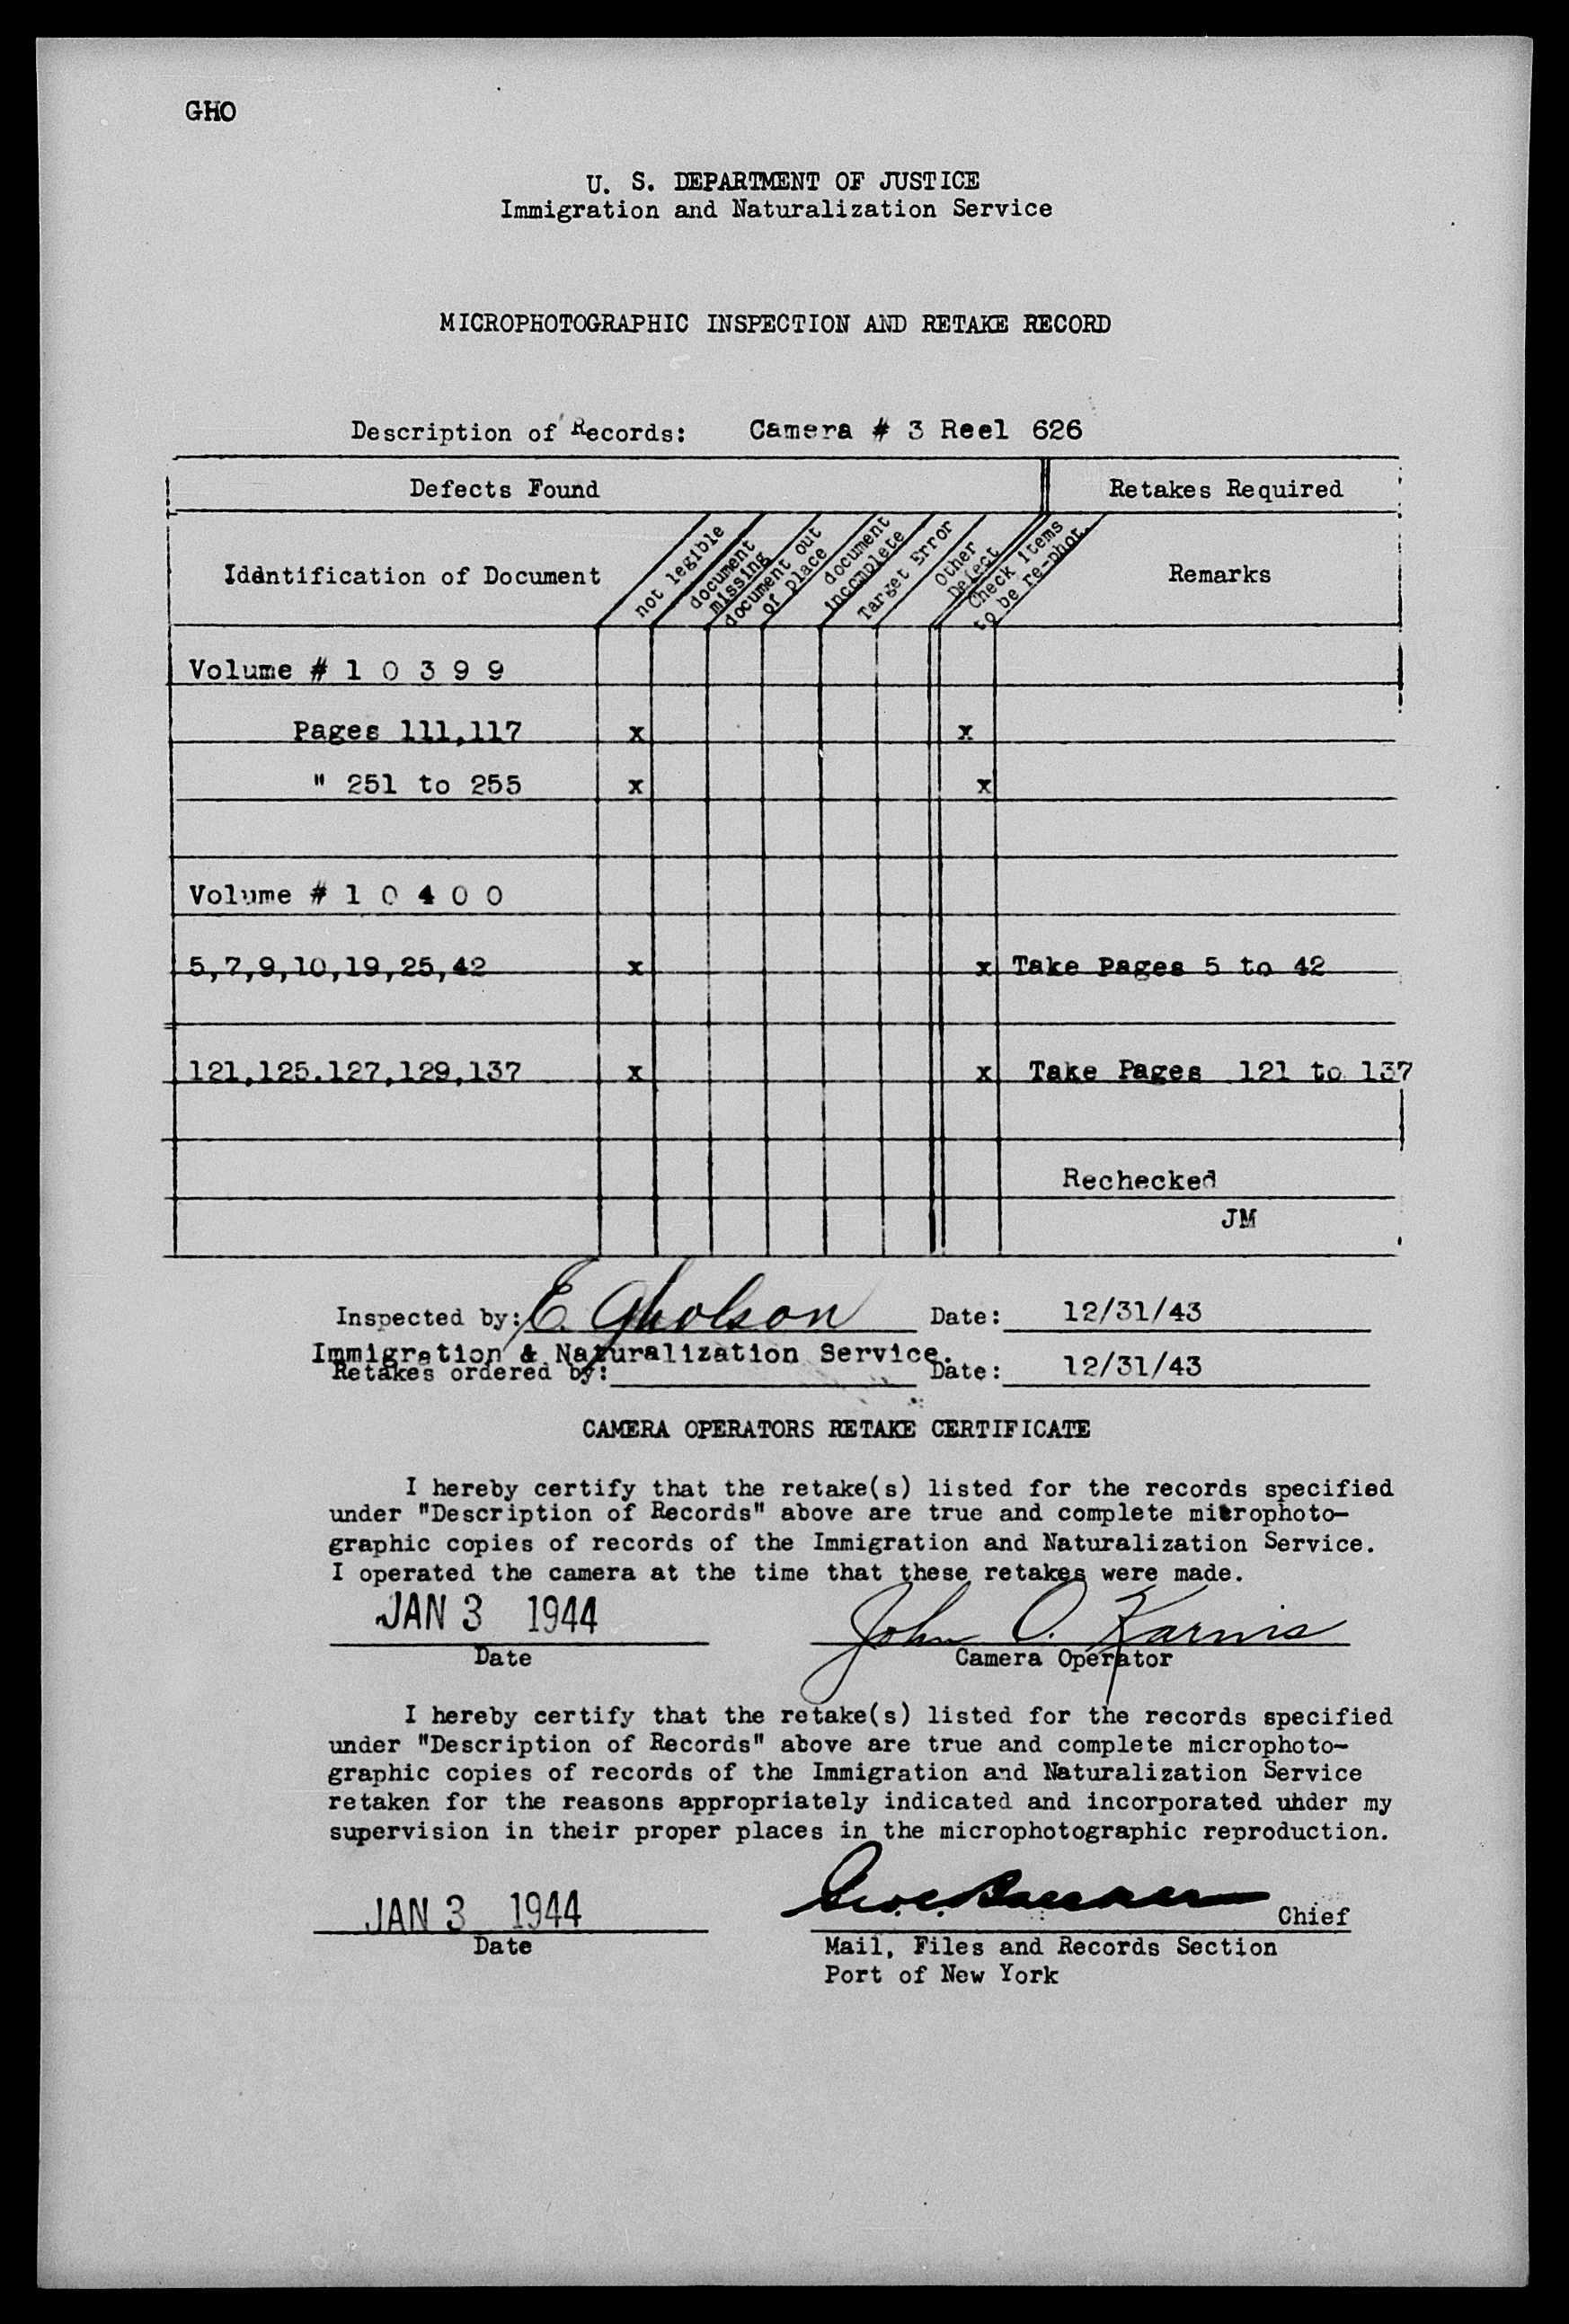 GHO
U. S. DEPARTMENT OF JUSTICE
Immigration and Naturalization Service
MICROPHOTOGRAPHIC INSPECTION AND RETAKE RECORD
Description of Records: Camera # 3 Reel 626
Defects Found Retakes Required
Iddntification of Document not legible document missing document out of place document incomplete Target Error Other Defect Check Items to be re-phot. Remarks
Volume # 1 0 3 9 9
Pages 111,117 x x
" 251 to 255 x x
Volume # 1 0 4 0 0
5,7,9,10,19,25,42 x x Take Pages 5 to 42
121,125.127,129,137 x x Take Pages 121 to 137
Rechecked
JM
Inspected by: E. Gholson Date: 12/31/43
Immigration & Naturalization Service.
Retakes ordered by: Date: 12/31/43
CAMERA OPERATORS RETAKE CERTIFICATE
I hereby certify that the retake(s) listed for the records specified
under "Description of Records" above are true and complete microphoto-
graphic copies of records of the Immigration and Naturalization Service.
I operated the camera at the time that these retakes were made.
JAN 3 1944 John O. Karnis
Date Camera Operator
I hereby certify that the retake(s) listed for the records specified
under "Description of Records" above are true and complete microphoto-
graphic copies of records of the Immigration and Naturalization Service
retaken for the reasons appropriately indicated and incorporated uhder my
supervision in their proper places in the microphotographic reproduction.
JAN 3 1944 Chief
Date Mail, Files and Records Section
Port of New York